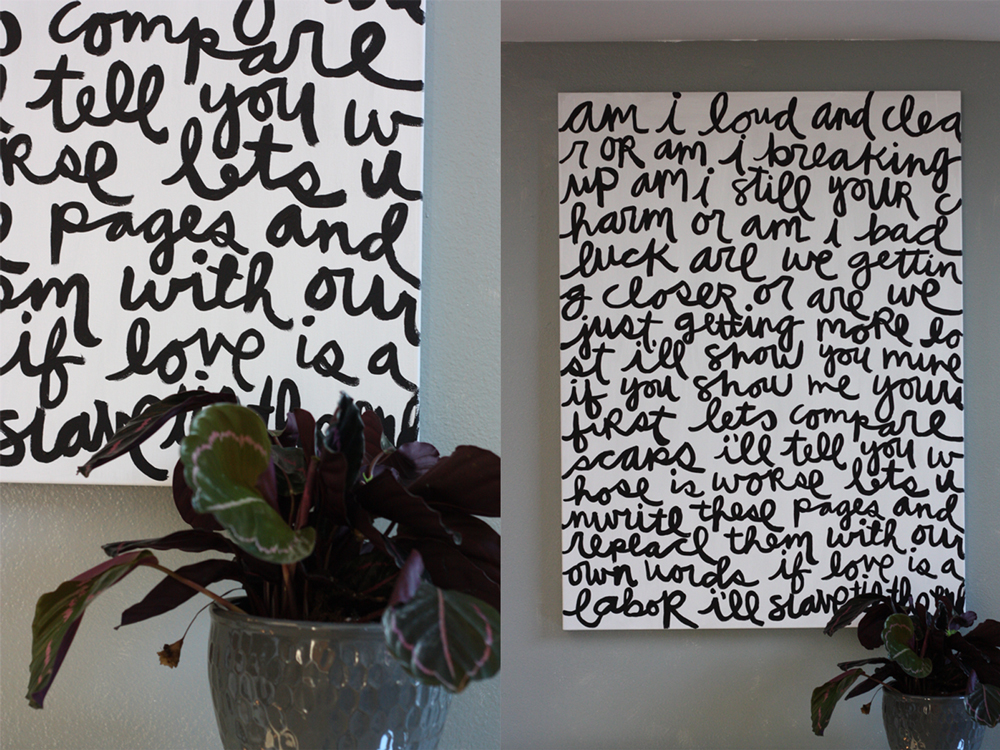 compare
tell you w
rse lets u
pages and
em with our
if love is a
slave til the end
am i loud and clea
r or am i breaking
up am i still your c
harm or am i bad
luck are we gettin
g closer or are we
just getting more lo
st ill show you mine
if you show me yours
first lets compare
scars i'll tell you w
hose is worse lets u
nwrite these pages and
replace them with our
own words if love is a
labor i'll slave til the end